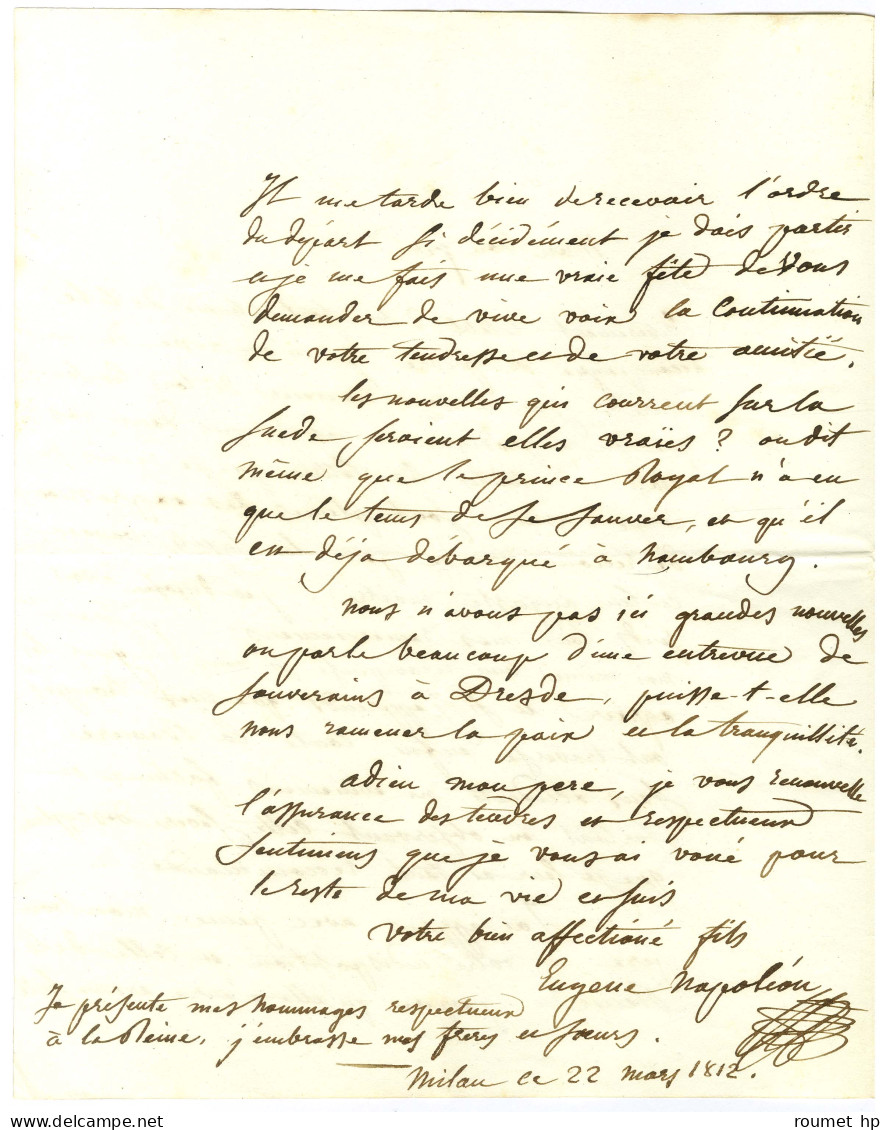 Il me tarde bien de recevoir l'ordre
du départ si décidément je dois partir
et je me fais une vraie fête de Vous
demander de vive voix la Continuation
de votre tendresse et de votre amitïé.
les nouvelles qui courrent sur la
suede seraient elles vraïes? on dit
même que le prince Royal n'a eu
que le tems de se sauver, et qu'il
est déja débarqué à hambourg.
nous n'avons pas ici grandes nouvelles
on parle beaucoup d'une entrevue de
souverains à Dresde, puisse-t-elle
nous ramener la paix et la tranquillité.
adieu mon pere, je vous renouvelle
l'assurance des tendres et respectueux
sentimens que je vous ai voué pour
le reste de ma vie et suis
votre bien affectioné fils
Eugene Napoléon
Je présente mes hommages respectueux
à la Reine, j'embrasse mes freres et sœurs.
Milan ce 22 mars 1812.
DELCAMPE.NET
roumet hp